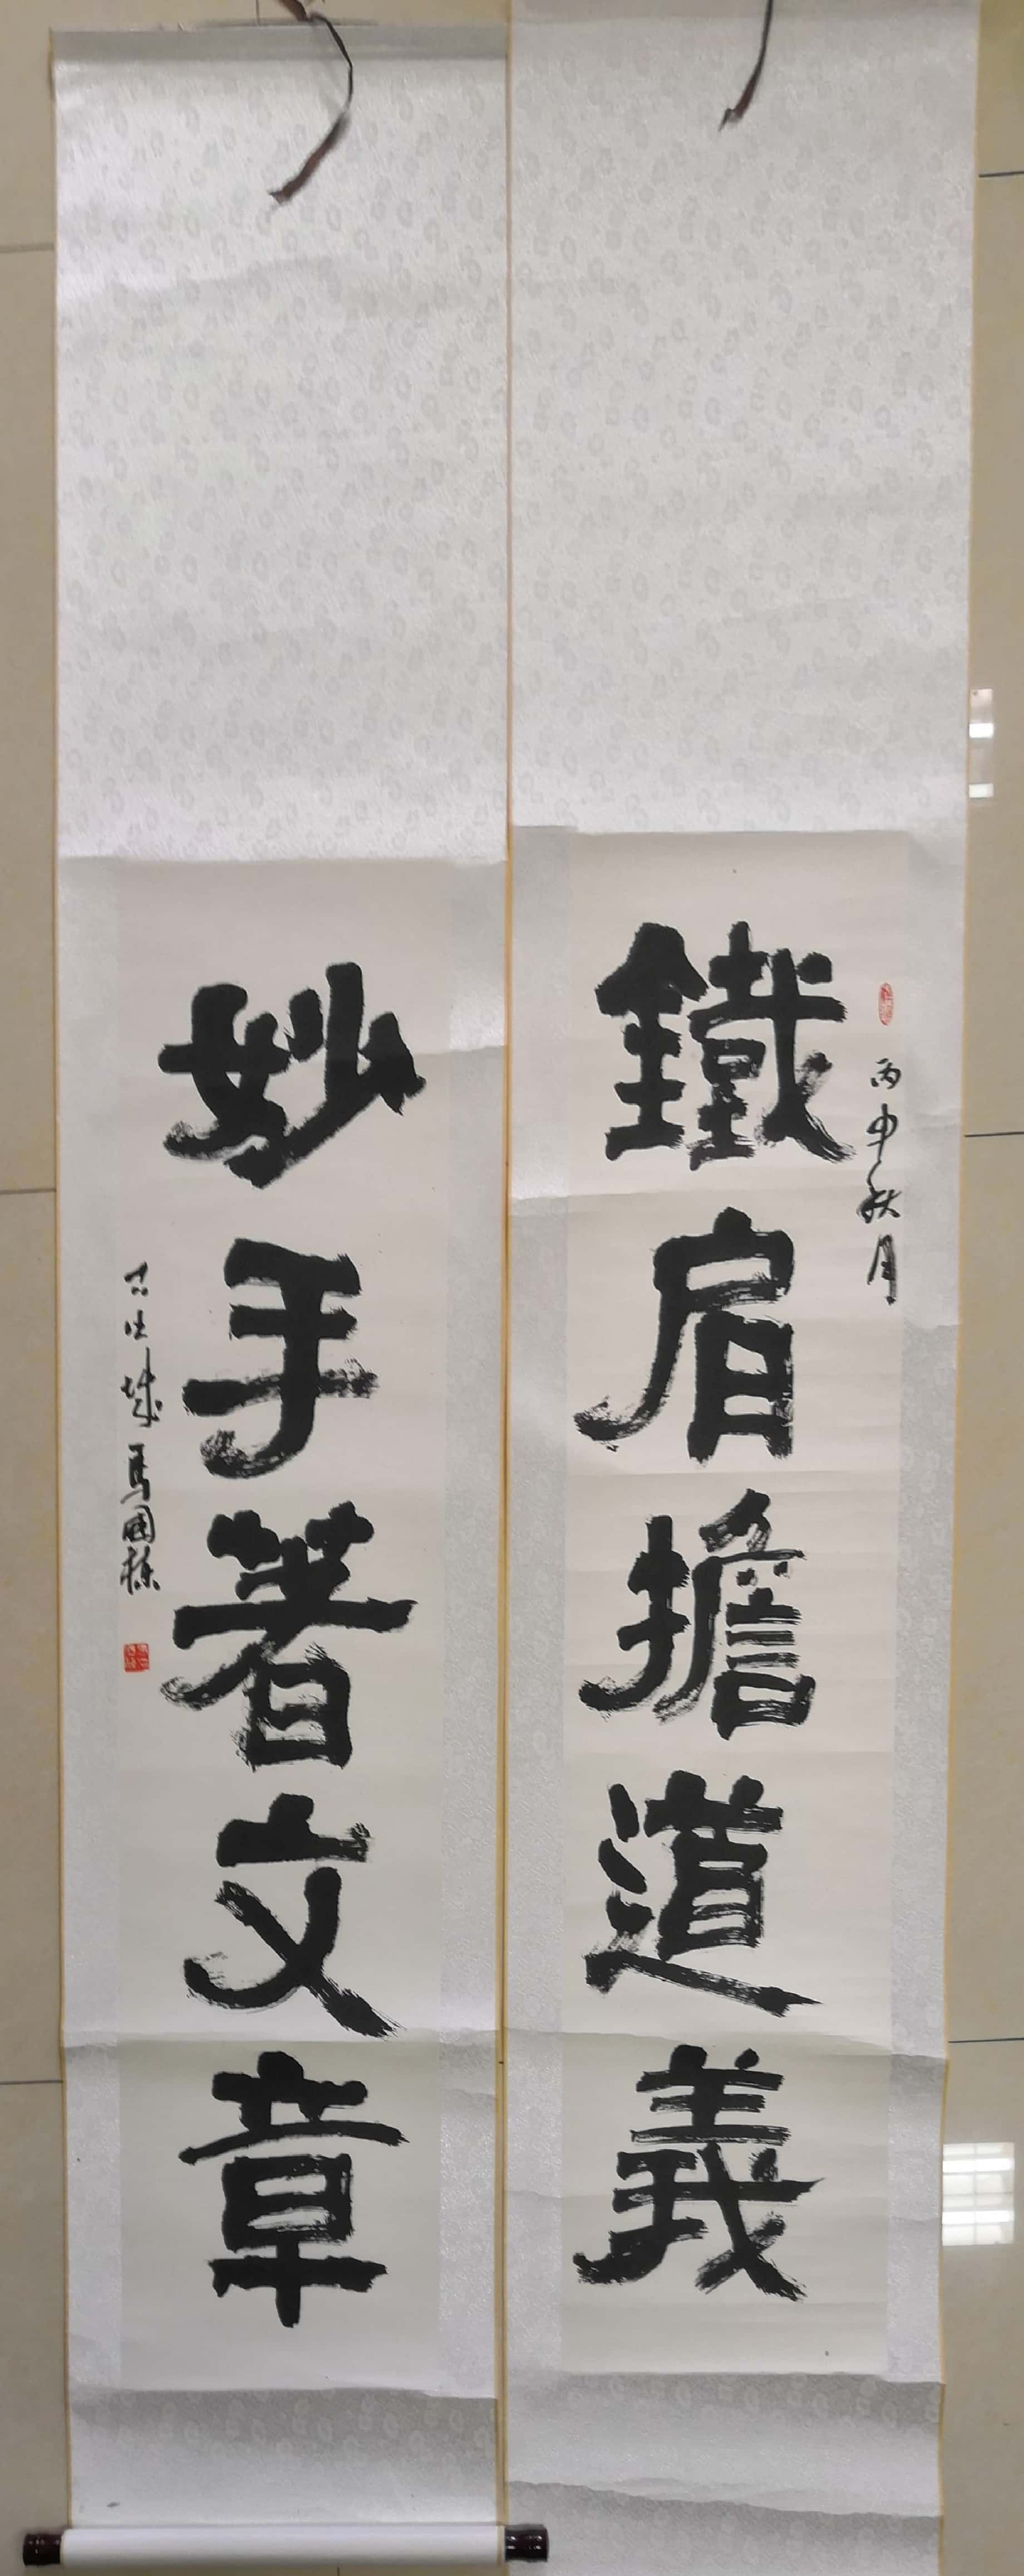 丙申秋月
鐵肩擔道義
妙手著文章
古中城馬國棟